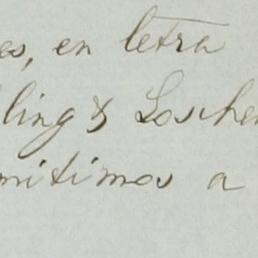 es, en letra
ling & Losche
mitimos a